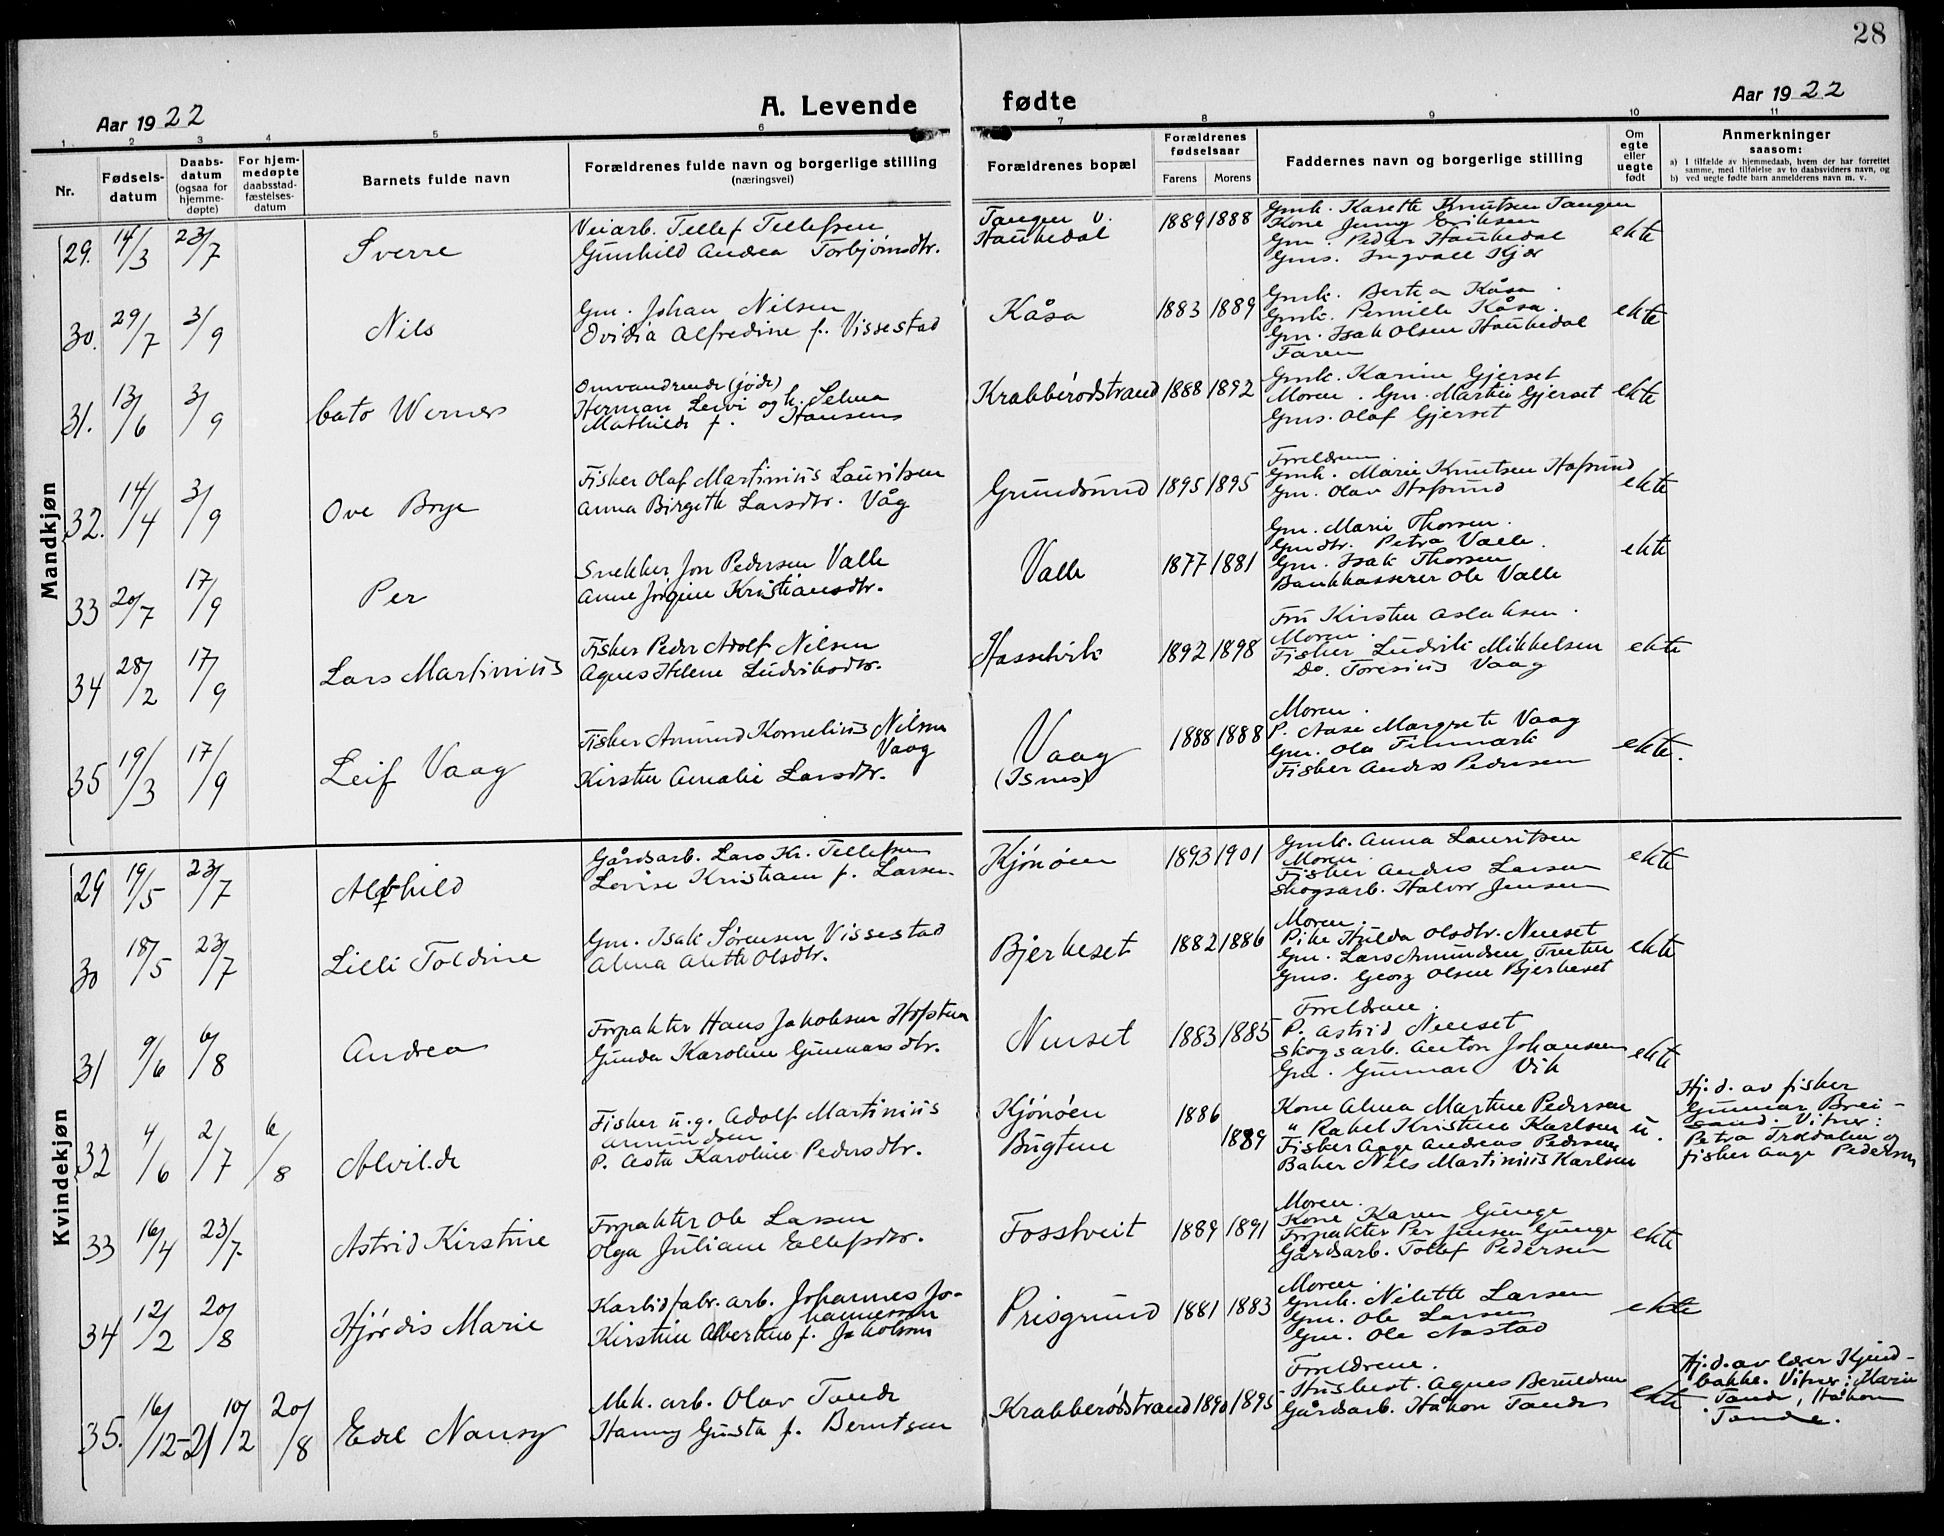 28
Aar 1922
A. Levende fødte
Aar 1922
1. 2 3 4 5 6 7 8 9 10 11
Nr.
Fødsels-datum
Daabs-datum (ogsaa for hjemme-døpte)
For hjem-medøpte daabsstad-fæstelses-datum
Barnets fulde navn
Forældrenes fulde navn og borgerlige stilling (næringsvei)
Forældrenes bopæl
Forældrenes fødselsaar
Farens Morens
Faddernes navn og borgerlige stilling
Om egte eller uegte født
Anmerkninger saasom:
a) I tilfælde av hjemmedaab, hvem der har forrettet samme, med tilføielse av to daabsvidners navn, og
b) ved uegte fødte barn anmelderens navn m. v.
Mandkjøn
29. 14/3 23/7 Sverre
Veiarb. Tellef Tellefsen
Gunhild Andrea Torbjørnsdtr.
Tangen v.
Haukedal
1889 1888
Gmk. Karethe Knutsen Tangen
Kone Jenny Eriksen
Gm. Peder Haukedal
Gms. Ingvald Kjær
ekte
30. 29/7 3/9 Nils
Gm. Johan Nilsen
Ovidia Alfredine f. Vissestad
Kåsa
1883 1889
Gmk. Berthea Kåsa.
Gmk. Pernille Kåsa.
Gm. Isak Olsen Haukedal
Faren
ekte
31. 13/6 3/9 Cato Werner
Omvandrende (jøde)
Herman Levi og h. Selma
Mathilde f. Hansens
Krabberödstrand
1888 1892
Gmk. Karine Gjerset
Moren. Gm. Martin Gjerset
Gms. Olaf Gjerset
ekte
32. 14/4 3/9 Ove Brye
Fisker Olaf Martinius Lauritsen
Anna Birgethe Larsdtr. Våg
Grundsund
1895 1895
Foreldrene.
Gmk. Marie Knutsen Hafsund
Gm. Olav Hafsund
ekte
33 20/7 17/9 Per
Snekker Jon Pedersen Valle
Anne Jörgine Kristiansdtr.
Valle
1877 1881
Gm. Marie Thorsen.
Gmdtr. Petra Valle.
Gm. Isak Thorsen
Bankkasserer Ole Valle
ekte
34 28/2 17/9 Lars Martinius
Fisker Peder Adolf Nilsen
Agnes Helene Ludviksdtr.
Hasselvik
1892 1898
Fru Kirsten Aslaksen.
Moren.
Fisker Ludvik Mikkelsen
Do. Toresius Vaag
ekte
35 19/3 17/9 Leif Vaag
Fisker Amund Kornelius Nilsen
Vaag
Kirsten Amalie Larsdtr.
Vaag
(Isnes)
1888 1888
Moren.
P. Aase Margrete Vaag
Gm. Ola Finmark
Fisker Anders Pedersen
ekte.
Kvindekjøn
29 19/5 23/7 Alfhild
Gårdsarb. Lars Kr. Tellefsen
Lovise Kristiane f. Larsen.
Kjönöen
1893 1901
Gmk. Anna Lauritsen
Moren.
Fisker Anders Larsen
Skogsarb. Halvor Jensen
ekte
30 18/5 23/7 Lilli Toldine
Gm. Isak Sörensen Vissestad
Alma Alette Olsdtr.
Bjerkeset
1882 1886
Moren.
Pike Hulda Olsdtr. Nenset
Gm. Lars Amundsen Treten
Gms. Georg Olsen Bjerkeset
ekte
31 9/6 6/8 Andrea
Forpakter Hans Jakobsen Hofsten
Gunda Karoline Gunnarsdtr.
Nenset
1883 1885
Foreldrene.
P. Astrid Nenset
Skogsarb. Anton Johansen
Gm. Gunnar Vik
ekte
32 4/6 2/7 6/8 Alvilde
Fisker u.g. Adolf Martinius
Amundsen
P. Asta Karoline Pedersdtr.
Kjönöen
Bugtene
1886
1889
Kone Alma Martine Pedersen
" Rakel Kristine Karlsen
Fisker Aage Andreas Pedersen
Baker Nils Martinius Karlsen
u.
Hj. d. av fisker
Gunnar Brei-
sand. Vitner:
Petra Trosdalen og
fisker Aage Pedersen
33 16/4 23/7. Astrid Kirstine
Forpakter Ole Larsen
Olga Juliane Ellefsdtr.
Fosstveit
1889 1891
Moren.
Kone Karen Gunge
Forpakter Per Jensen Gunge
Gårdsarb. Tollef Pedersen
ekte
34 12/2 20/8 Hjördis Marie
Karbidfabr. arb. Johannes Jo-
hannessen
Kirstine Albertine f. Jakobsen
Prisgrund
1881 1883
Moren.
Gmk. Nilette Larsen
Gm. Ole Larsen
Gm. Ole Nastad
ekte
35. 16/12-21 10/2 20/8 Edel Nansy
Mek. arb. Olav Tande
Hanny Gusta f. Berntsen
Krabberødstrand
1890 1895
Foreldrene.
Husbest. Agnes Beruldsen
Gårdsarb. Håkon Tande
ekte
Hj. d. av lærer Kjend-
bakke. Vitner: Marie
Tande, Håkon
Tande.